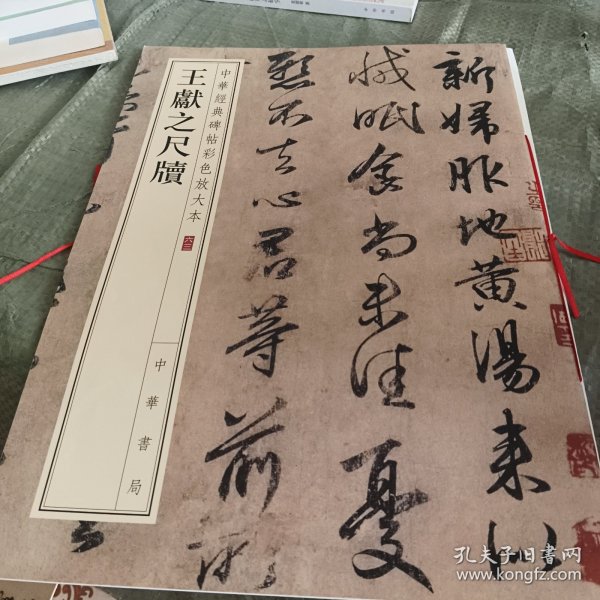 中華經典碑帖彩色放大本
六三
王獻之尺牘
中華書局
新婦服地黄湯来似
減眠食尚未佳憂
懸不去心君等前所
孔夫子旧书网
www.kongfz.com